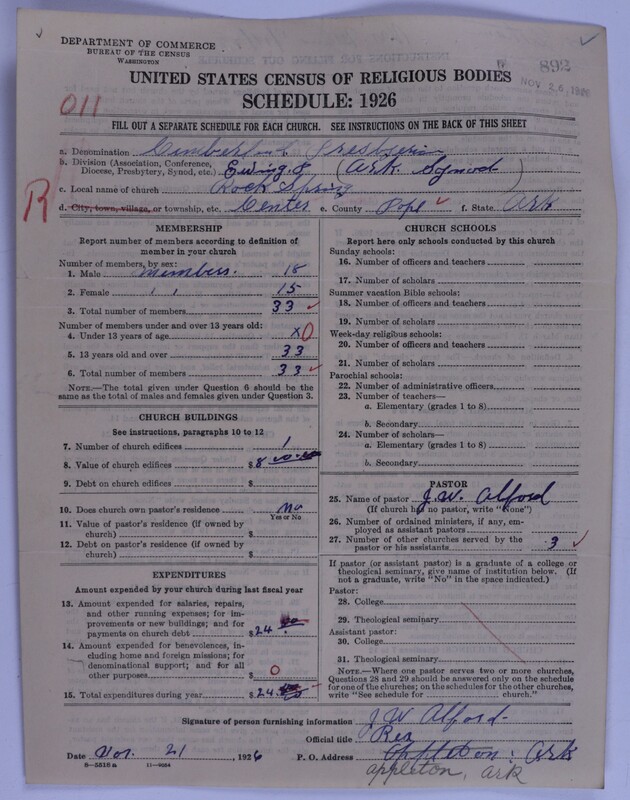 DEPARTMENT OF COMMERCE
BUREAU OF THE CENSUS
WASHINGTON
892
NOV 26, 1926
UNITED STATES CENSUS OF RELIGIOUS BODIES
SCHEDULE: 1926
011
FILL OUT A SEPARATE SCHEDULE FOR EACH CHURCH. SEE INSTRUCTIONS ON THE BACK OF THIS SHEET
R
a. Denomination Cumberland Presbyterian
b. Division (Association, Conference, Diocese, Presbytery, Synod, etc.) Ewing (Ark. Synod)
c. Local name of church Rock Spring
d. City, town, village, or township, etc. Center e. County Pope f. State Ark
MEMBERSHIP
Report number of members according to definition of member in your church
Number of members by sex:
1. Male Members. 18
2. Female " " 15
3. Total number of members 33
Number of members under and over 13 years old:
4. Under 13 years of age x0
5. 13 years old and over 33
6. Total number of members 33
NOTE.—The total given under Question 6 should be the same as the total of males and females given under Question 3.
CHURCH BUILDINGS
See instructions, paragraphs 10 to 12
7. Number of church edifices 1
8. Value of church edifices $800.00
9. Debt on church edifices $
10. Does church own pastor's residence? No
Yes or No
11. Value of pastor's residence (if owned by church) $
12. Debt on pastor's residence (if owned by church) $
EXPENDITURES
Amount expended by your church during last fiscal year
13. Amount expended for salaries, repairs, and other running expenses; for improvements or new buildings; and for payments on church debt $24
14. Amount expended for benevolences, including home and foreign missions; for denominational support; and for all other purposes $0
15. Total expenditures during year $24
CHURCH SCHOOLS
Report here only schools conducted by this church
Sunday schools:
16. Number of officers and teachers
17. Number of scholars
Summer vacation Bible schools:
18. Number of officers and teachers
19. Number of scholars
Week-day religious schools:
20. Number of officers and teachers
21. Number of scholars
Parochial schools:
22. Number of administrative officers
23. Number of teachers—
a. Elementary (grades 1 to 8)
b. Secondary
24. Number of scholars—
a. Elementary (grades 1 to 8)
b. Secondary
PASTOR
25. Name of pastor J. W. Alford
(If church has no pastor, write "None")
26. Number of ordained ministers, if any, employed as assistant pastors
27. Number of other churches served by the pastor or his assistants 3
If pastor (or assistant pastor) is a graduate of a college or theological seminary, give name of institution below. (If not a graduate, write "No" in the space indicated.)
Pastor:
28. College
29. Theological seminary
Assistant pastor:
30. College
31. Theological seminary
NOTE.—Where one pastor serves two or more churches, Questions 28 and 29 should be answered only on the schedule for one of the churches; on the schedules for the other churches, write "See schedule for ........ church."
Signature of person furnishing information J. W. Alford
Official title Rev
Date Nov. 21, 1926 P. O. Address Appleton, Ark
appleton, ark
8—5516a 11—9684